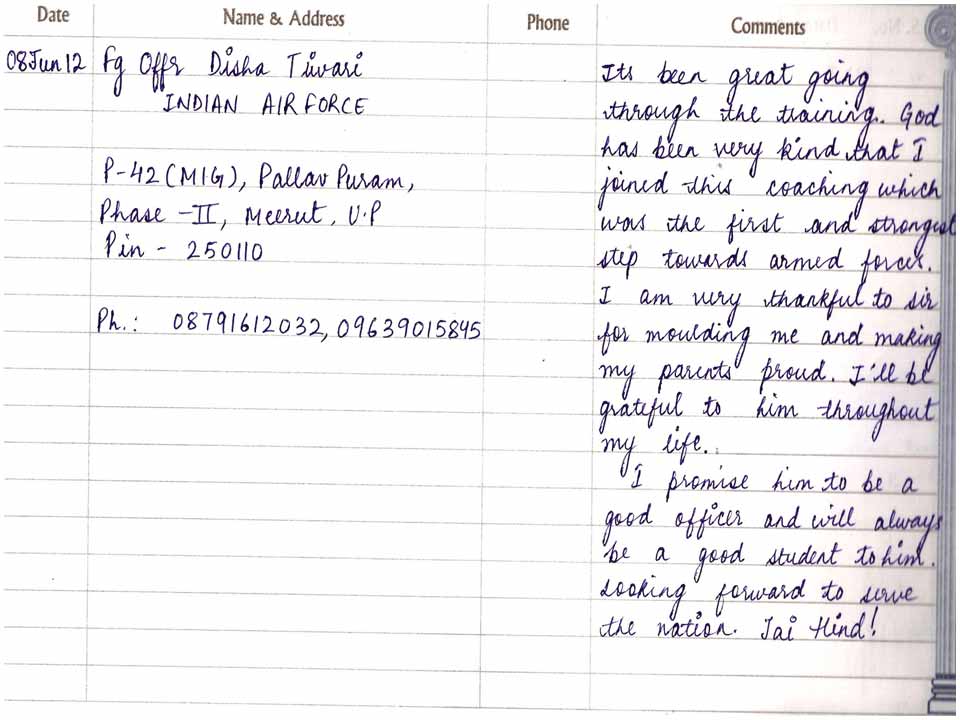 Date Name & Address Phone Comments
08Jun12 Fg Offr Disha Tiwari
INDIAN AIR FORCE
P-42 (MIG), Pallav Puram,
Phase - II, Meerut, U.P
Pin - 250110
Ph.: 08791612032, 09639015845
Its been great going
through the training. God
has been very kind that I
joined this coaching which
was the first and strongest
step towards armed forces.
I am very thankful to sir
for moulding me and making
my parents proud. I'll be
grateful to him throughout
my life.
I promise him to be a
good officer and will always
be a good student to him.
Looking forward to serve
the nation. Jai Hind!